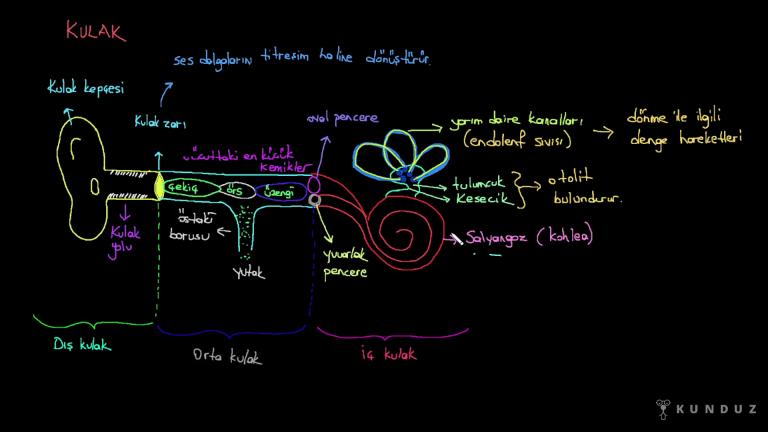 KULAK
ses dalgaların titreşim haline dönüştürür.
Kulak kepçesi
Kulak zarı
oval pencere
vücuttaki en küçük
kemikler
yarım daire kanalları
(endolenf sıvısı)
dönme ile ilgili
denge hareketleri
çekiç
örs
üzengi
tulumcuk
kesecik
otolit
bulundurur.
Kulak
yolu
östaki
borusu
yutak
yuvarlak
pencere
Salyangoz (kohlea)
Dış kulak
Orta kulak
İç kulak
KUNDUZ